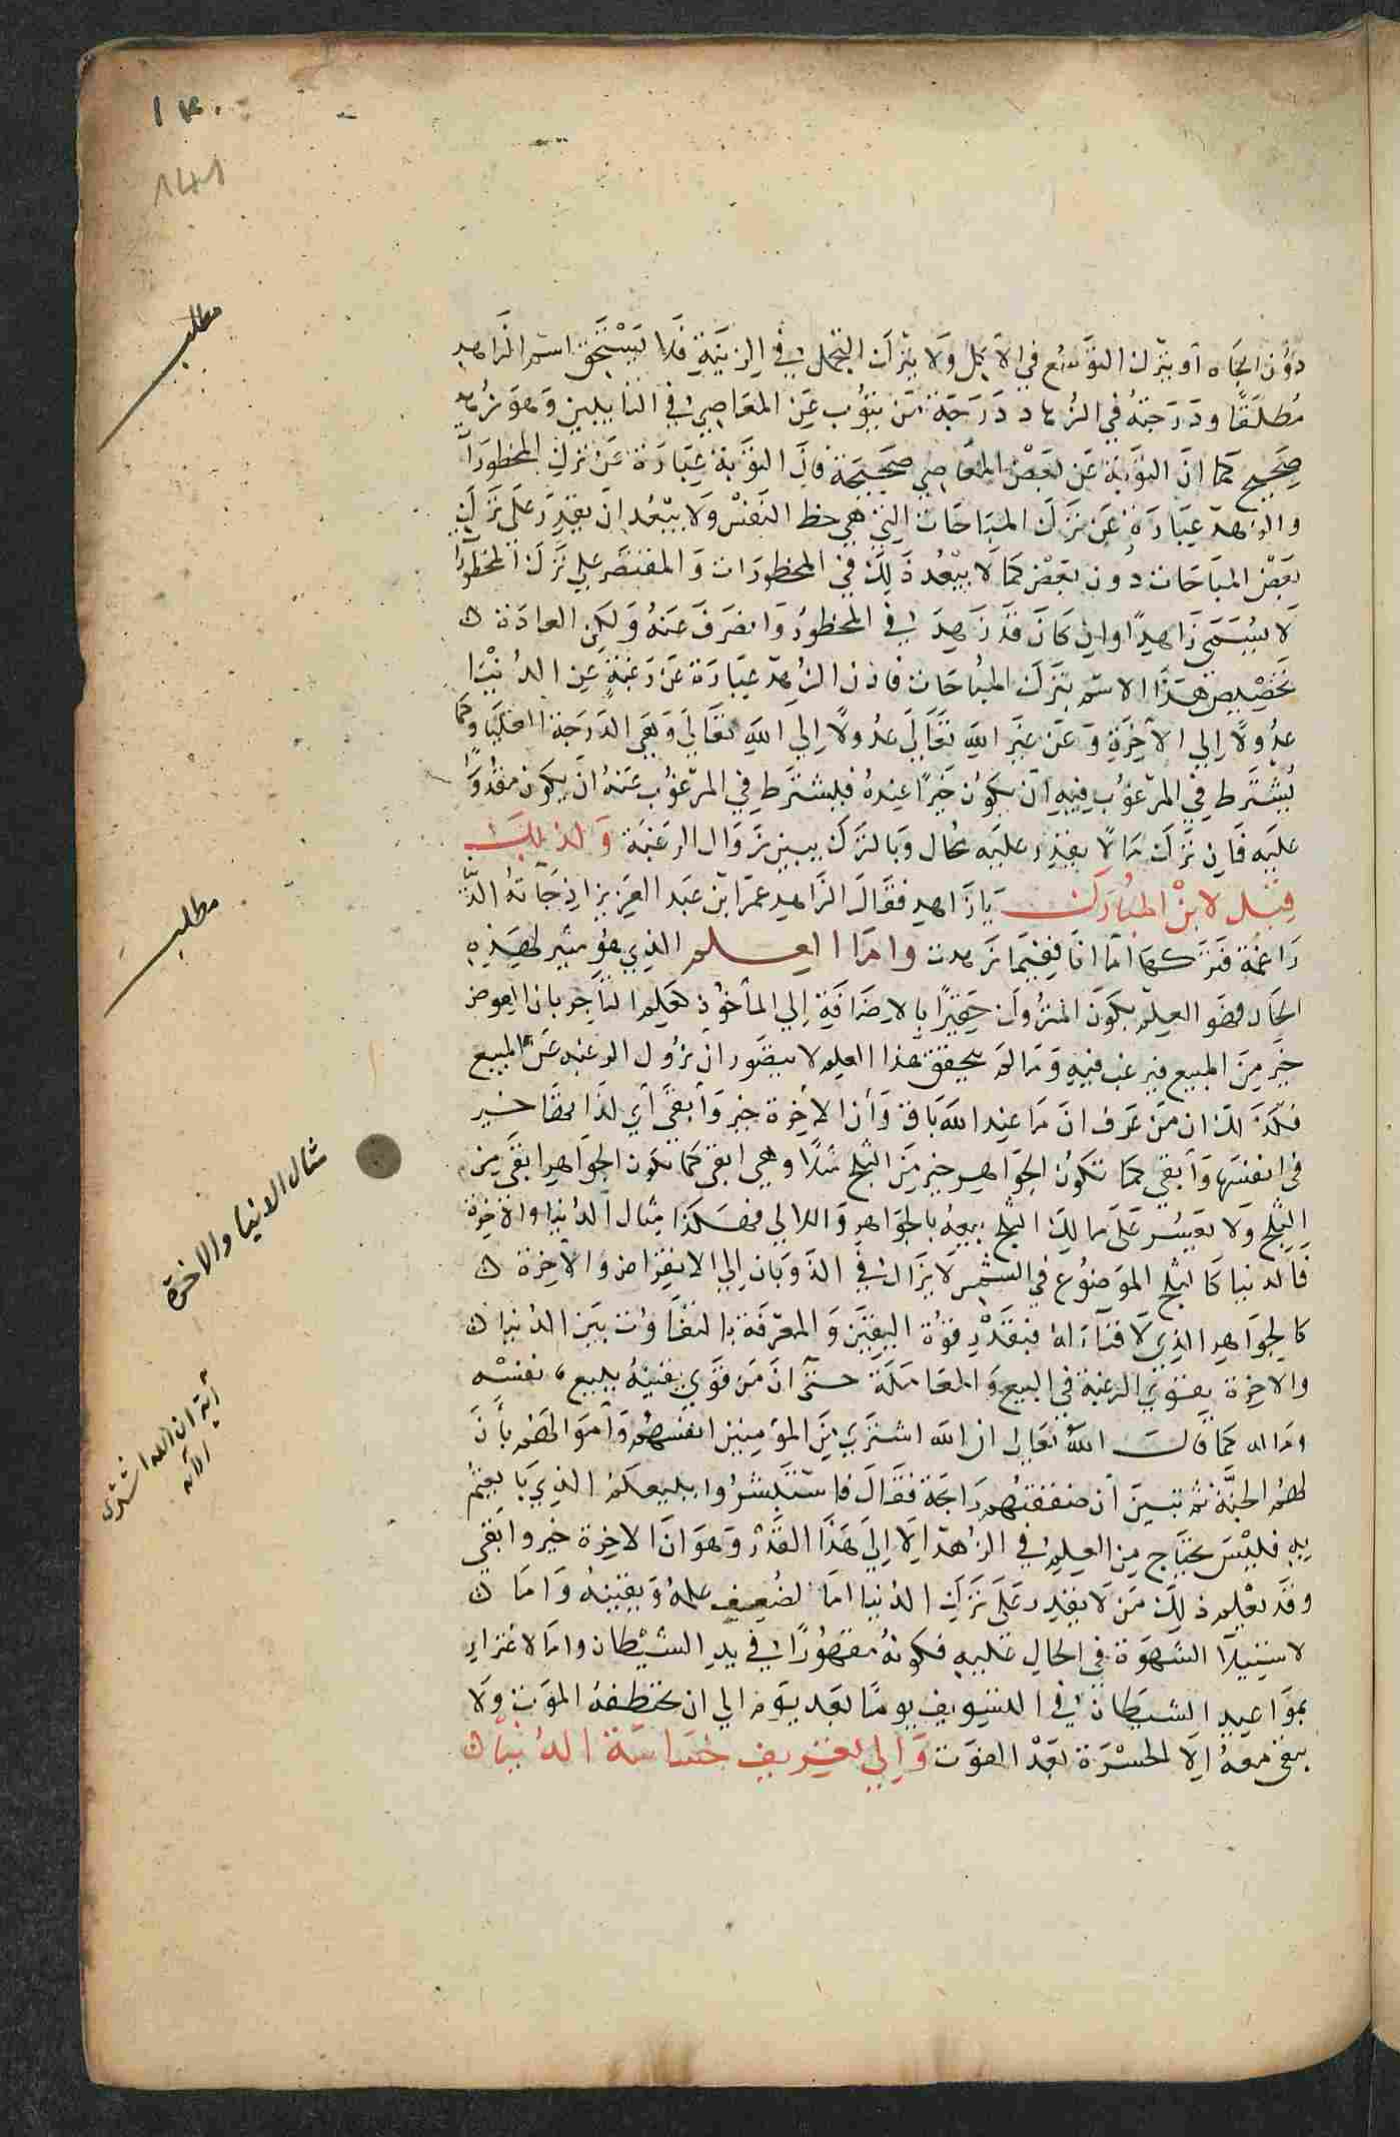 ١٤٠
141
مطلب
دون الجاه او يترك التوسع في الاكل ولا يترك التجمل في الزينة فلا يستحق اسم الزاهد
مطلقا ودرجته في الزهاد درجة من يتوب عن المعاصي في التايبين وهو زهد
صحيح كما ان التوبة عن بعض المعاصي صحيحة فان التوبة عبارة عن ترك المحظورات
والزهد عبارة عن ترك المباحات التي هي حظ النفس ولا يبعد ان يقدر على ترك
بعض المباحات دون بعض كما لا يبعد ذلك في المحظورات والمقتصر على ترك المحظورات
لا يسمى زاهدا وان كان قد زهد في المحظور وانصرف عنه ولكن العادة
تخصيص هذا الاسم بترك المباحات فاذن الزهد عبارة عن رغبة عن الدنيا
عدولا الي الاخرة وعن غير الله تعالى عدولا الي الله تعالى وهي الدرجة العليا وكما
يشترط في المرغوب فيه ان يكون خيرا عنده فيشترط في المرغوب عنه ان يكون مقدورا
عليه فان ترك ما لا يقدر عليه محال وبالترك يبين زوال الرغبة ولذلك
قيل لابن المبارك يا زاهد فقال الزاهد عمر ابن عبد العزيز اذ جاته الدنيا
راغمة فتركها اما انا ففيما زهدت واما العلم الذي هو مثير لهذه
الحال فهو العلم بكون المتروك حقيرا بالاضافة الي الماخوذ كعلم التاجر بان العوض
خير من المبيع فيرغب فيه وما لم يحقق هذا العلم لا يتصور ان يزول الرغبة عن المبيع
فكذلك ان من عرف ان ما عند الله باق وأن الاخرة خير وأبقى أي لذاتها خير
في انفسها وأبقي كما تكون الجواهر خير من الثلج مثلا وهي ابقي كما تكون الجواهر ابقى من
الثلج ولا يعسر على مالك الثلج بيعه بالجواهر واللالي فهكذا مثال الدنيا والاخرة
فالدنيا كالثلج الموضوع في الشمس لا يزال في الذوبان الي الانقراض والاخرة
كالجواهر الذي لا فناء له فبقدر قوة اليقين والمعرفة بالتفاوت بين الدنيا
والاخرة يقوي الرغبة في البيع والمعاملة حتى ان من قوي يقينه يبيع نفسه
وماله كما قال الله تعالى ان الله اشتري من المؤمنين انفسهم وأموالهم بأن
لهم الجنة ثم تبين أن صفقتهم رابحة فقال فاستبشروا ببيعكم الذي بايعتم
به فليس يحتاج من العلم في الزهد الا الي هذا القدر وهو ان الاخرة خير وابقي
وقد يعلم ذلك من لا يقدر على ترك الدنيا اما لضعيف علمه ويقينه واما
لاستيلا الشهوة في الحال عليه فكونه مقهورا في يد الشيطان واما لاغتراره
بمواعيد الشيطان في التسويف يوما بعد يوم الي ان يختطفه الموت ولا
يبقى معه الا الحسرة بعد الفوت والي تعريف خساسة الدنيا
مطلب
مثال الدنيا والاخرة
آية ان الله اشترى
الآية